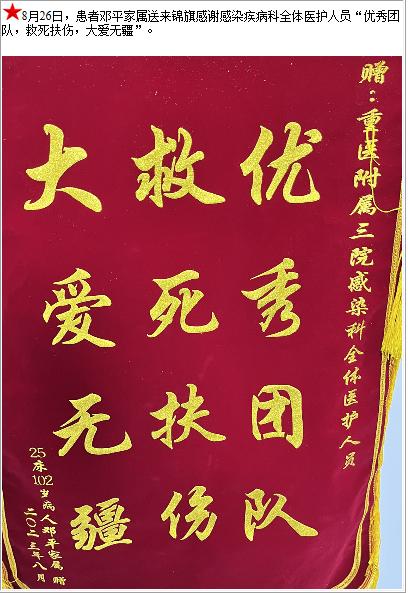 ★8月26日，患者邓平家属送来锦旗感谢感染疾病科全体医护人员“优秀团
队，救死扶伤，大爱无疆”。
赠：重医附属三院感染科全体医护人员
优秀团队
救死扶伤
大爱无疆
25床102岁病人邓平家属 赠
二〇二三年八月